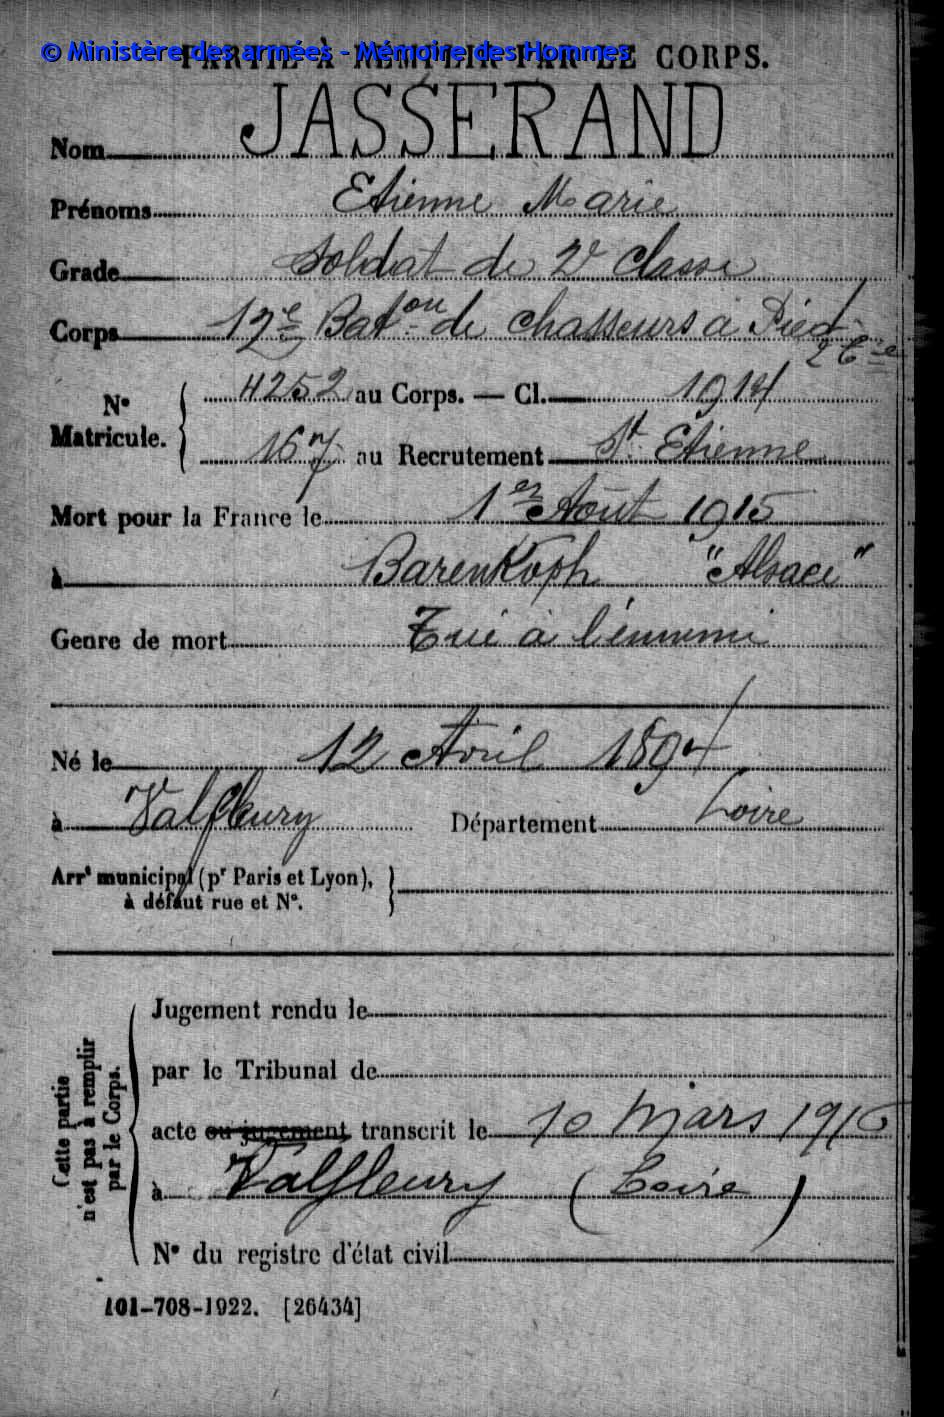 © Ministère des armées - Mémoire des Hommes
PARTIE À REMPLIR PAR LE CORPS.
Nom JASSERAND
Prénoms Etienne Marie
Grade Soldat de 2e classe
Corps 12e Baton de chasseurs à Pied 2 Cie
N° Matricule. { 4252 au Corps. — Cl. 1914
167 au Recrutement St Etienne
Mort pour la France le 1er Août 1915
à Barenkoph "Alsace"
Genre de mort Tué à l'énnemi
Né le 12 Avril 1894
à Valfleury Département Loire
Arrt municipal (pr Paris et Lyon), }
à défaut rue et N°.
Cette partie n'est pas à remplir par le Corps.
Jugement rendu le
par le Tribunal de
acte ou jugement transcrit le 10 Mars 1916
à Valfleury (Loire)
N° du registre d'état civil
101-708-1922. [26434]